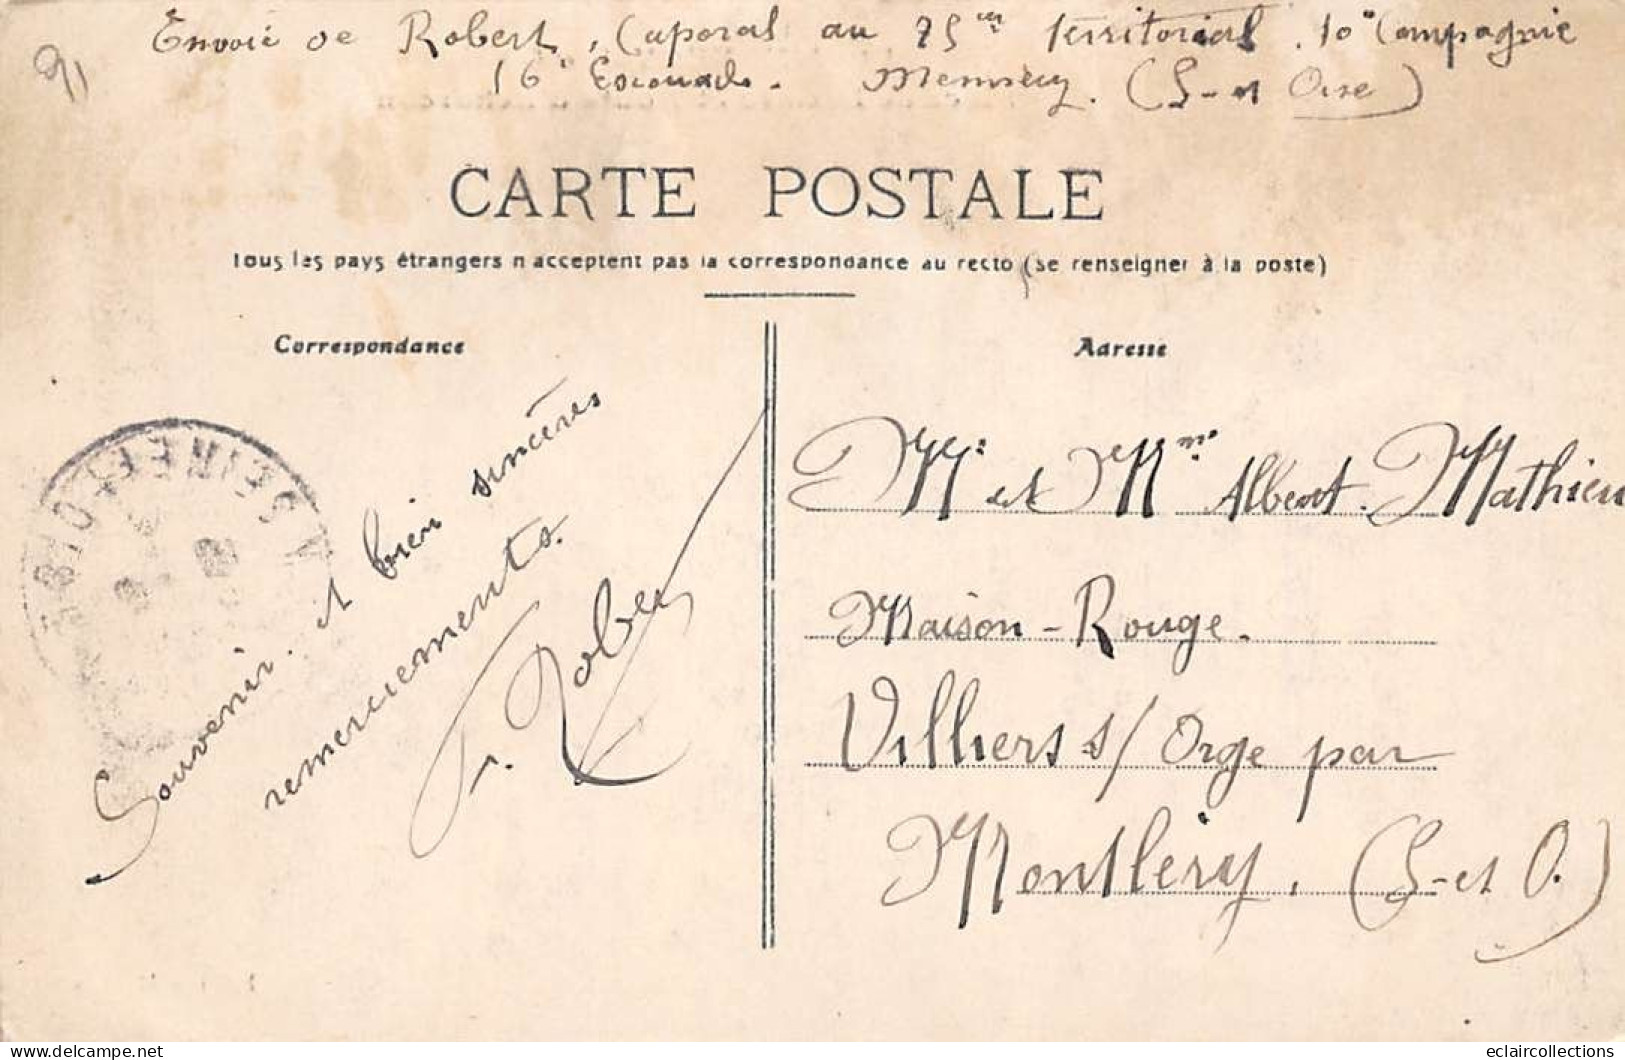 91
Envoi de Robert, Caporal au 75me territorial. 10e Compagnie
16e Escouade. Mennecy. (S-et Oise)
CARTE POSTALE
Tous les pays étrangers n'acceptent pas la correspondance au recto (se renseigner à la poste)
Correspondance
Souvenir. et bien sincères
remerciements.
Robert
Adresse
Mr et Mme Albert Mathieu
Maison-Rouge.
Villiers s/ Orge par
Montlery. (S-et O.)
SEINE-ET-OISE
eclaircollections